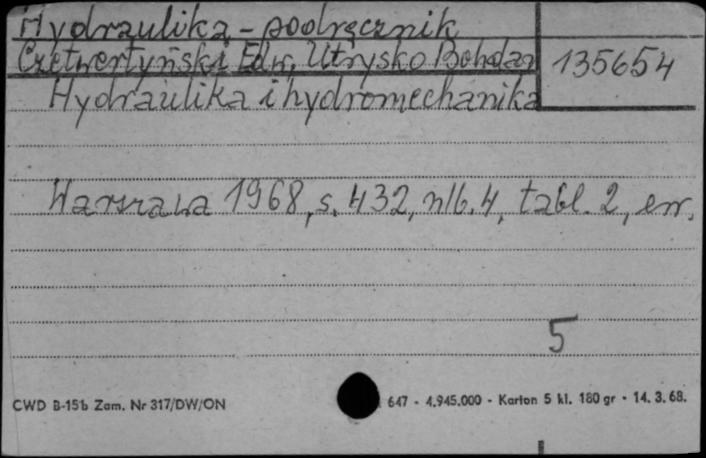 Hydraulika - podręcznik
Czetwertyński Edw, Utrysko Bohdan
135654
Hydraulika i hydromechanika
Warszawa 1968, s. 432, nlb. 4, tabl. 2, err.
5
CWD B-15b Zam. Nr 317/DW/ON
647 - 4.945.000 - Karton 5 kl. 180 gr - 14. 3. 68.